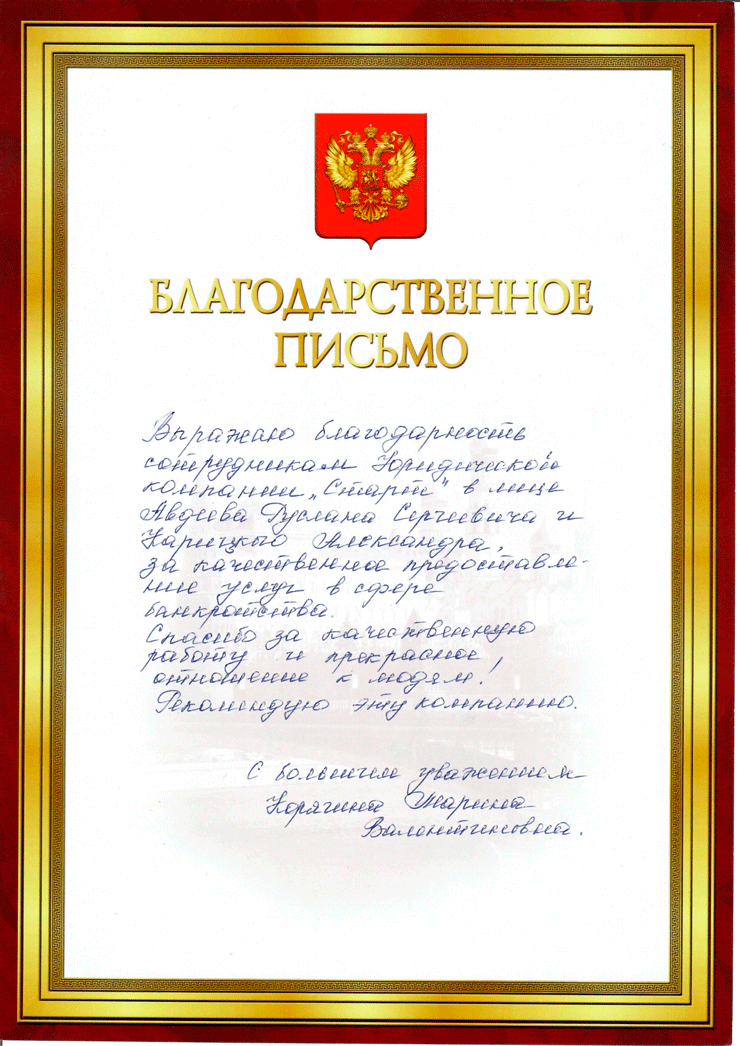 БЛАГОДАРСТВЕННОЕ
ПИСЬМО
Выражаю благодарность
сотрудникам Юридической
компании „Старт" в лице
Авдеева Руслана Сергеевича и
Александра,
за качественное предоставле-
ние услуг в сфере
банкротства.
Спасибо за качественную
работу и прекрасное
отношение к людям!
Рекомендую эту компанию.
С большим уважением
Корягина Марина
Валентиновна.